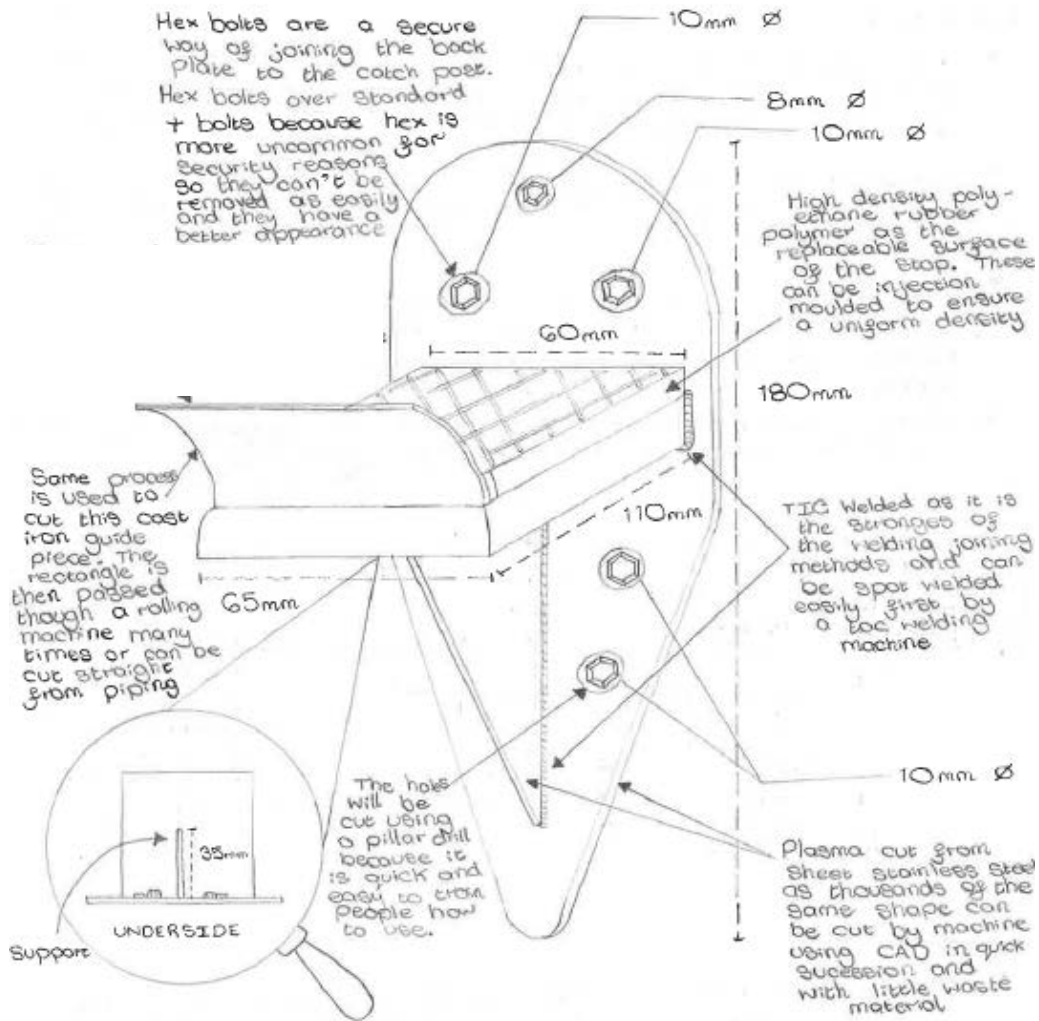 Hex bolts are a secure
way of joining the back
plate to the catch post.
Hex bolts over standard
+ bolts because hex is
more uncommon for
security reasons
so they can't be
removed as easily
and they have a
better appearance
10mm Ø
8mm Ø
10mm Ø
High density poly-
ethane rubber
polymer as the
replaceable surface
of the stop. These
can be injection
moulded to ensure
a uniform density
60mm
180mm
Same process
is used to
cut this cast
iron guide
piece. The
rectangle is
then passed
though a rolling
machine many
times or can be
cut straight
from piping
65mm
110mm
TIG Welded as it is
the stronges of
the welding joining
methods and can
be spot welded
easily first by
a tac welding
machine
10mm Ø
The holes
will be
cut using
a pillar drill
because it
is quick and
easy to train
people how
to use.
35mm
UNDERSIDE
Support
Plasma cut from
sheet stainless steel
as thousands of the
same shape can
be cut by machine
using CAD in quick
sucession and
with little waste
material